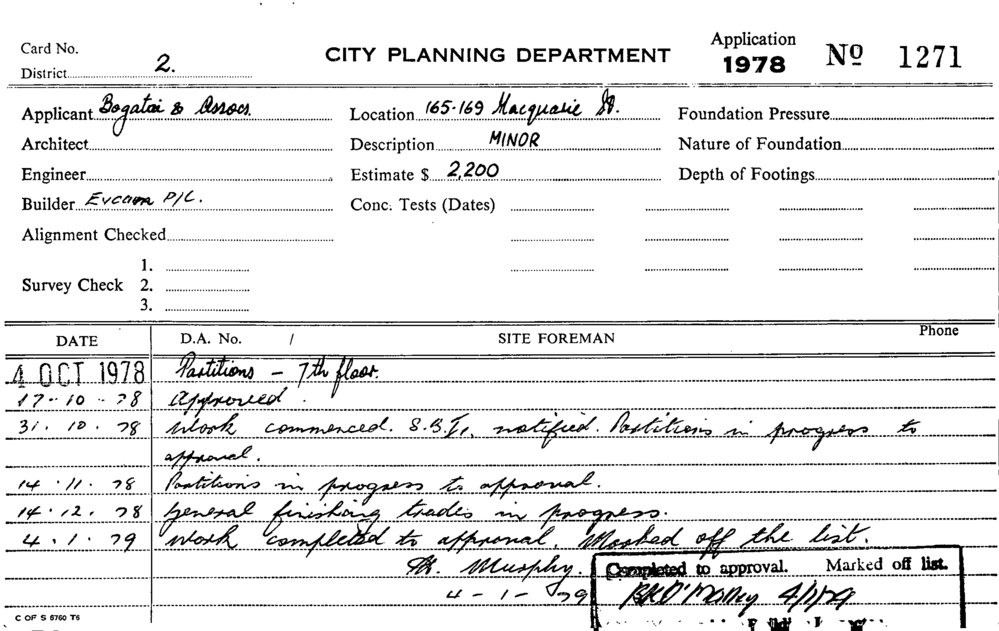 Card No.
District 2.
CITY PLANNING DEPARTMENT
Application
1978
No 1271
Applicant Bogatai & Assocs. Location 165-169 Macquarie St. Foundation Pressure
Architect Description MINOR Nature of Foundation
Engineer Estimate $ 2,200 Depth of Footings
Builder P/L. Conc. Tests (Dates)
Alignment Checked
1.
Survey Check 2.
3.
DATE D.A. No. / SITE FOREMAN Phone
4 OCT 1978 Partitions - 7th floor.
17-10-78 Approved.
31.10.78 Work commenced. S.B.I. notified. Partitions in progress to
approval.
14.11.78 Partitions in progress to approval.
14.12.78 General finishing trades in progress.
4.1.79 Work completed to approval. Marked off the list.
Murphy.
4-1-79
Completed to approval. Marked off list.
O'Malley 4/1/79
C OF S 5760 T6